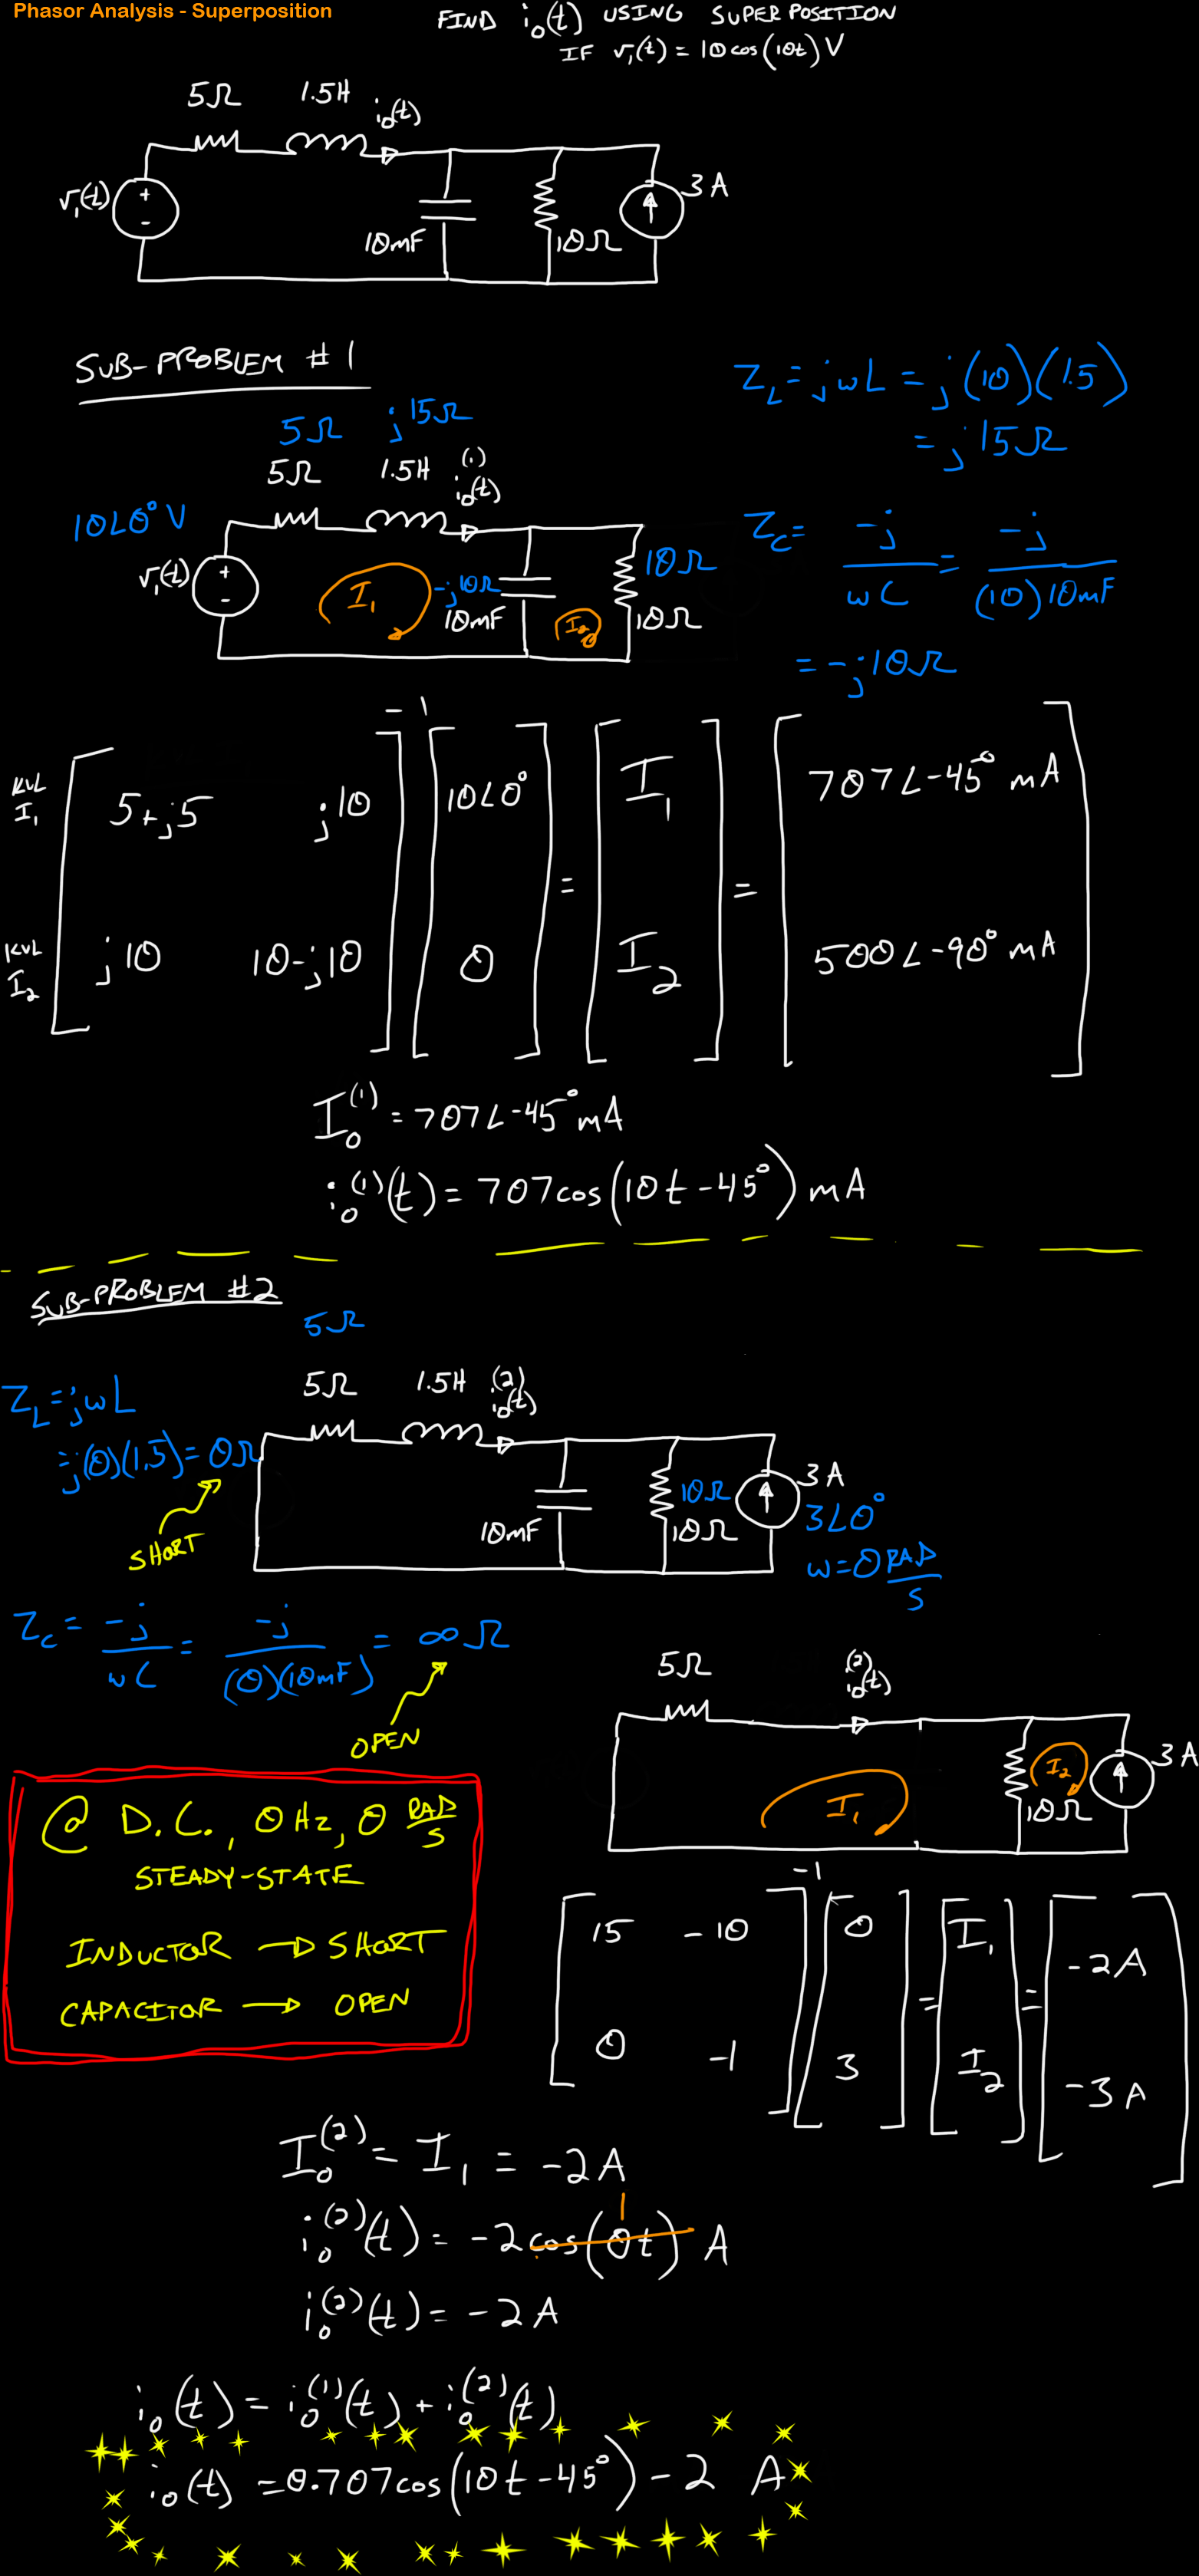 Phasor Analysis - Superposition
FIND i₀(t) USING SUPERPOSITION
IF v₁(t) = 10 cos(10t) V
5Ω 1.5H i₀(t)
v₁(t) + - 10mF 10Ω 3A
SUB-PROBLEM #1
Z_L = jωL = j(10)(1.5)
= j15Ω
5Ω j15Ω
5Ω 1.5H i₀⁽¹⁾(t)
10∠0° V
v₁(t) + - I₁ -j10Ω 10mF I₂ 10Ω 10Ω
Z_C = -j/ωC = -j/(10)10mF
= -j10Ω
KVL I₁ [5+j5 j10]⁻¹ [10∠0°] = [I₁] = [707∠-45° mA]
KVL I₂ [j10 10-j10] [0] = [I₂] = [500∠-90° mA]
I₀⁽¹⁾ = 707∠-45° mA
i₀⁽¹⁾(t) = 707cos(10t-45°) mA
SUB-PROBLEM #2
5Ω
Z_L = jωL
= j(0)(1.5) = 0Ω
SHORT
5Ω 1.5H i₀⁽²⁾(t)
10mF 10Ω 10Ω 3A
3∠0°
ω = 0 RAD/S
Z_C = -j/ωC = -j/(0)(10mF) = ∞Ω
OPEN
5Ω i₀⁽²⁾(t)
I₁ 10Ω I₂ 3A
@ D.C., 0 Hz, 0 RAD/S
STEADY-STATE
INDUCTOR → SHORT
CAPACITOR → OPEN
[15 -10]⁻¹ [0] = [I₁] = [-2A]
[0 -1] [3] = [I₂] = [-3A]
I₀⁽²⁾ = I₁ = -2A
1
i₀⁽²⁾(t) = -2cos(0t) A
i₀⁽²⁾(t) = -2A
i₀(t) = i₀⁽¹⁾(t) + i₀⁽²⁾(t)
i₀(t) = 0.707cos(10t-45°) - 2 A